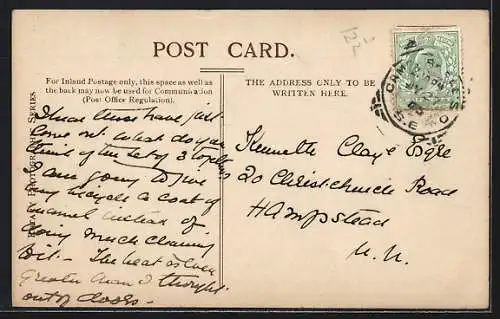 POST CARD.
For Inland Postage only, this space as well as
the back may now be used for Communication
(Post Office Regulation).
THE ADDRESS ONLY TO BE
WRITTEN HERE.
ROTARY PHOTOGRAPHIC SERIES
These have just
come out. What do you
think of the set of 3
I am going to give
my bicycle a coat of
enamel instead of
doing much cleaning
bit. The heat is even
greater than I thought
out of doors.
Kenneth Claye Esqre
20 Christchurch Road
Hampstead
N.W.
S.E.